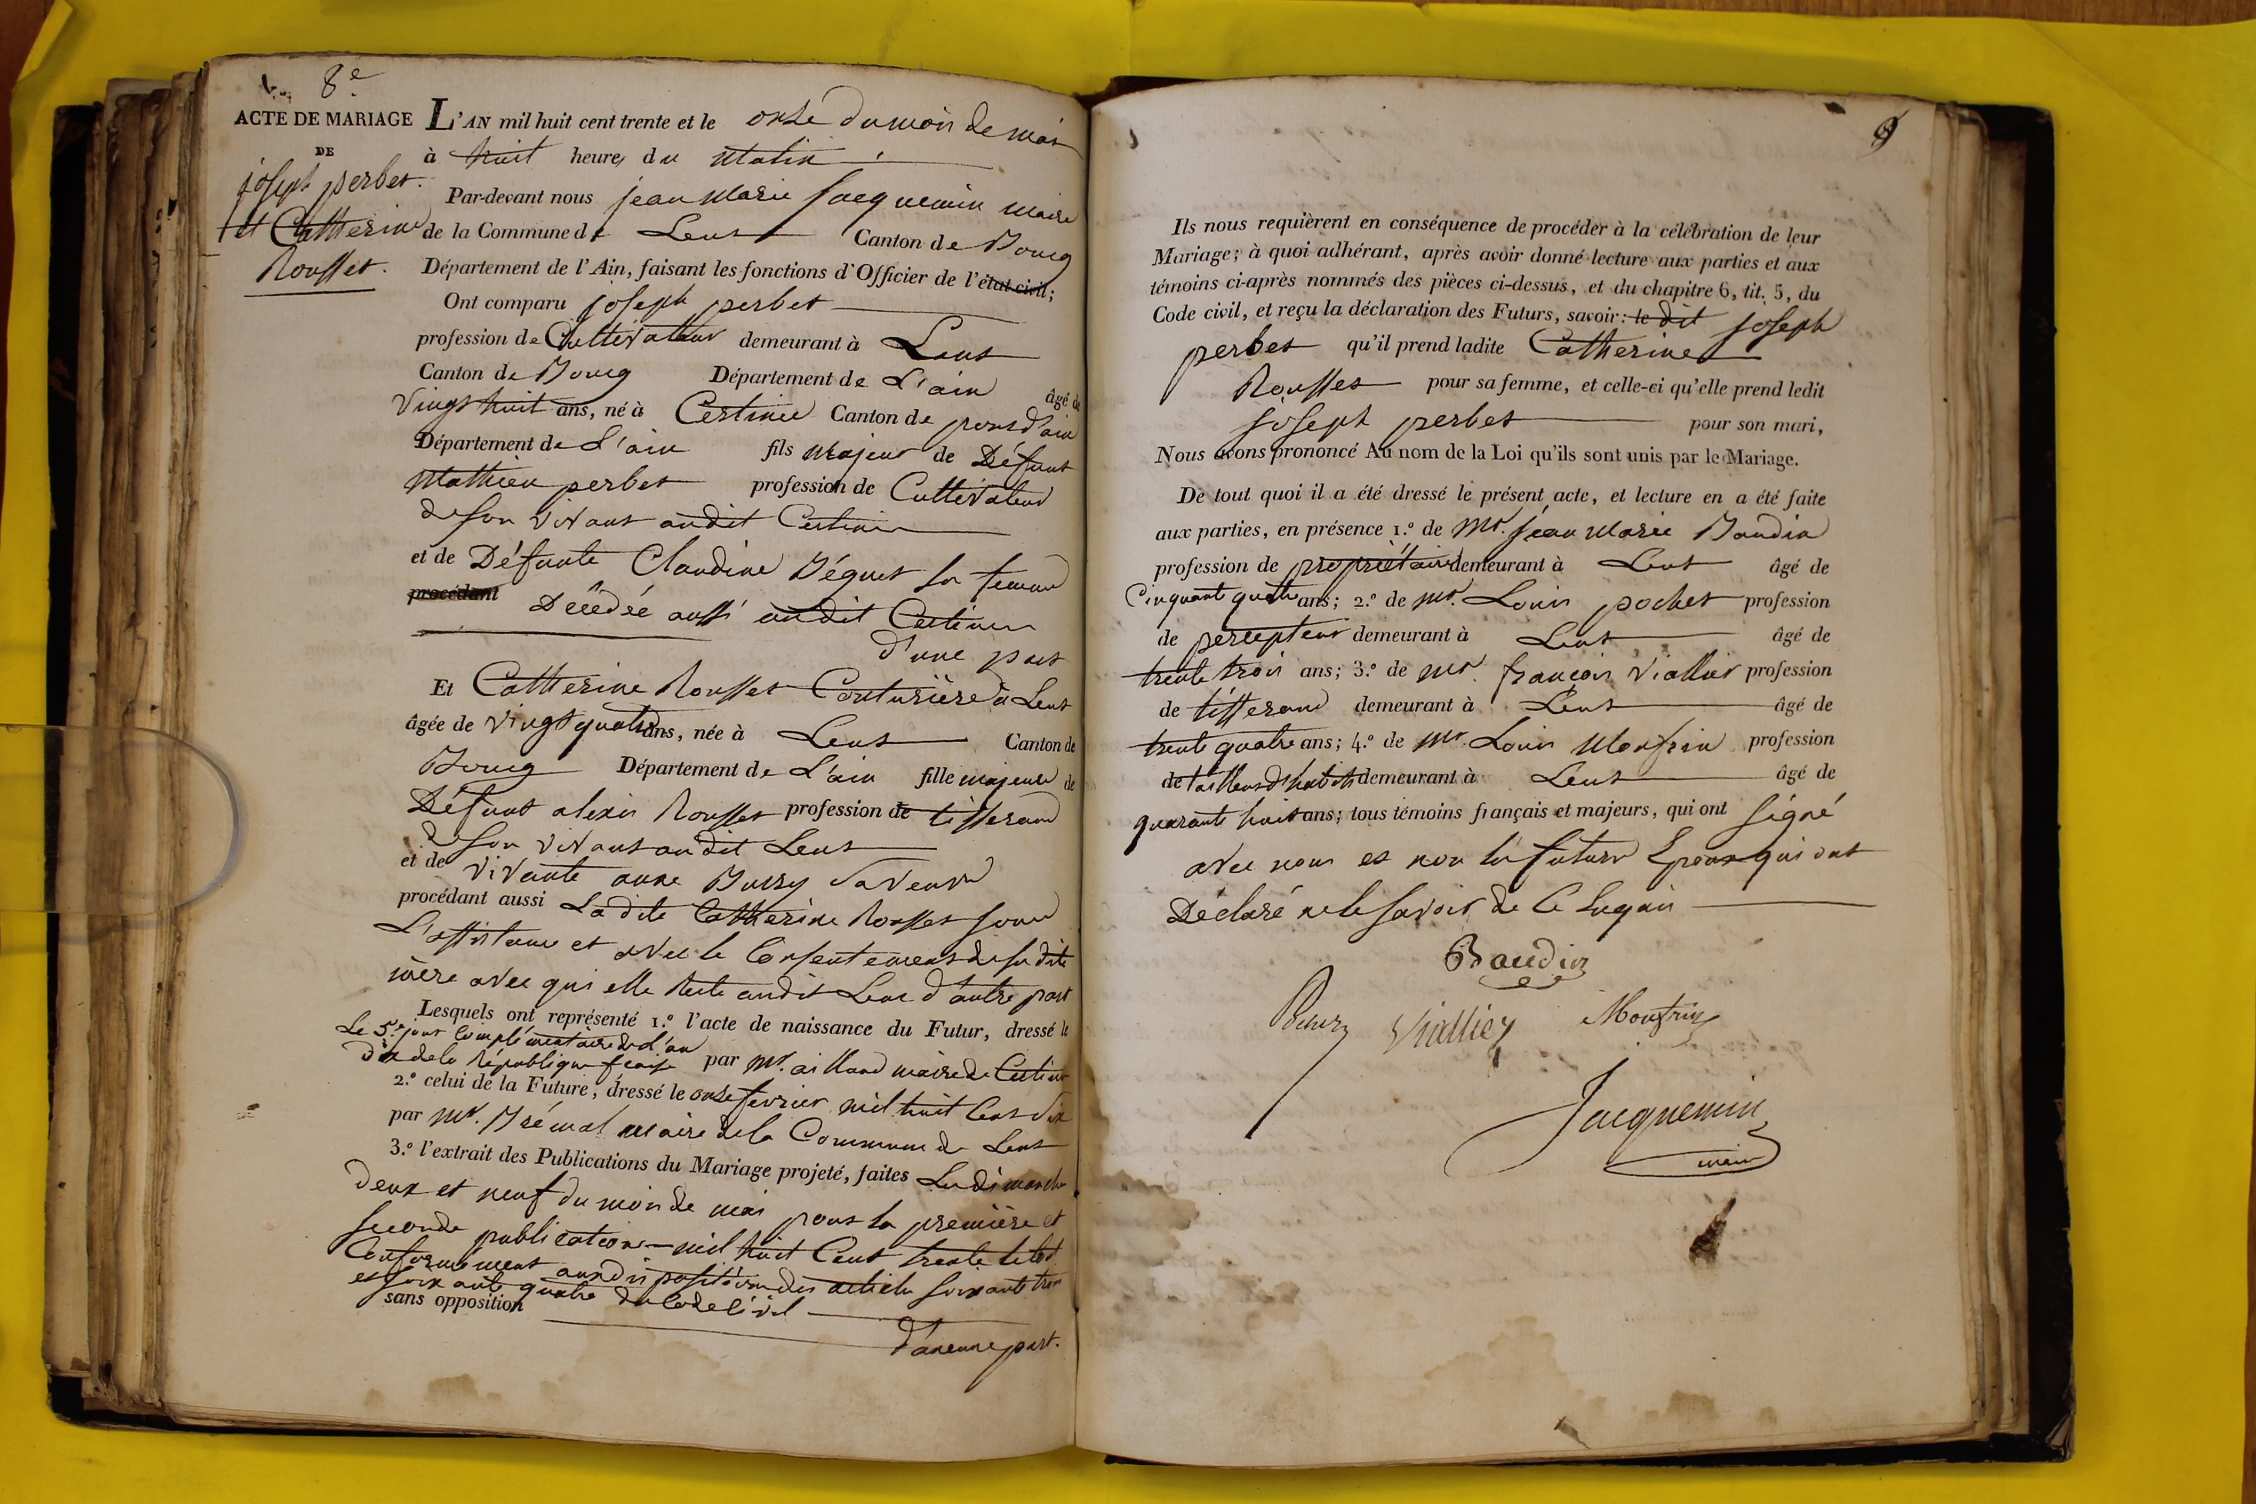 8.e
ACTE DE MARIAGE
DE
joseph perbet.
et Catherine
Rousset.
L'AN mil huit cent trente et le onze du mois de mai
à huit heures du matin
Par-devant nous jean Marie Jacquemin maire
de la Commune de Lent Canton de Bourg
Département de l'Ain, faisant les fonctions d'Officier de l'état civil;
Ont comparu joseph perbet
profession de Cultivateur demeurant à Lent
Canton de Bourg Département de L'ain âgé de
vingt huit ans, né à Certines Canton de pont d'ain
Département de L'ain fils majeur de Défunt
Mathieu perbet profession de Cultivateur
de son vivant audit Certines
et de Défunte Claudine Béguet sa femme
procédant Décédée aussi audit Certines
d'une part
Et Catherine Rousset Couturière à Lent
âgée de vingt quatre ans, née à Lent Canton de
Bourg Département de L'ain fille majeure de
Défunt alexis Rousset profession de tisserand
de son vivant audit Lent
et de vivante anne Buissy sa veuve
procédant aussi Ladite Catherine Rousset sous
L'assistance et avec le Consentement de sa dite
mère avec qui elle Reste audit Lent d'autre part
Lesquels ont représenté 1.º l'acte de naissance du Futur, dressé le
Le 5.e jour Complémentaire de L'an
dix de la République française par Mr. aillaud maire de Certines
2.º celui de la Future, dressé le onze février mil huit Cent six
par Mr. Brémal maire de la Commune de Lent
3.º l'extrait des Publications du Mariage projeté, faites Les dimanche
deux et neuf du mois de mai pour la première et
seconde publication mil huit Cent trente le tout
Conformément aux dispositions des articles soixante trois
et soixante quatre du Code Civil
sans opposition
d'aucune part.
9
Ils nous requièrent en conséquence de procéder à la célébration de leur
Mariage; à quoi adhérant, après avoir donné lecture aux parties et aux
témoins ci-après nommés des pièces ci-dessus, et du chapitre 6, tit. 5, du
Code civil, et reçu la déclaration des Futurs, savoir: le dit joseph
perbet qu'il prend ladite Catherine
Rousset pour sa femme, et celle-ci qu'elle prend ledit
joseph perbet pour son mari,
Nous avons prononcé Au nom de la Loi qu'ils sont unis par le Mariage.
De tout quoi il a été dressé le présent acte, et lecture en a été faite
aux parties, en présence 1.º de Mr. jean Marie Baudin
profession de propriétaire demeurant à Lent âgé de
Cinquante quatre ans; 2.º de Mr. Louis pochet profession
de percepteur demeurant à Lent âgé de
trente trois ans; 3.º de Mr. françois Viallier profession
de tisserand demeurant à Lent âgé de
trente quatre ans; 4.º de Mr. Louis Monfrin profession
de tailleur d'habits demeurant à Lent âgé de
quarante huit ans; tous témoins français et majeurs, qui ont signé
avec nous et non les futurs Epoux qui ont
Déclaré ne le savoir de Ce Requis
Baudin
Pochet Viallier Monfrin
Jacquemin
maire